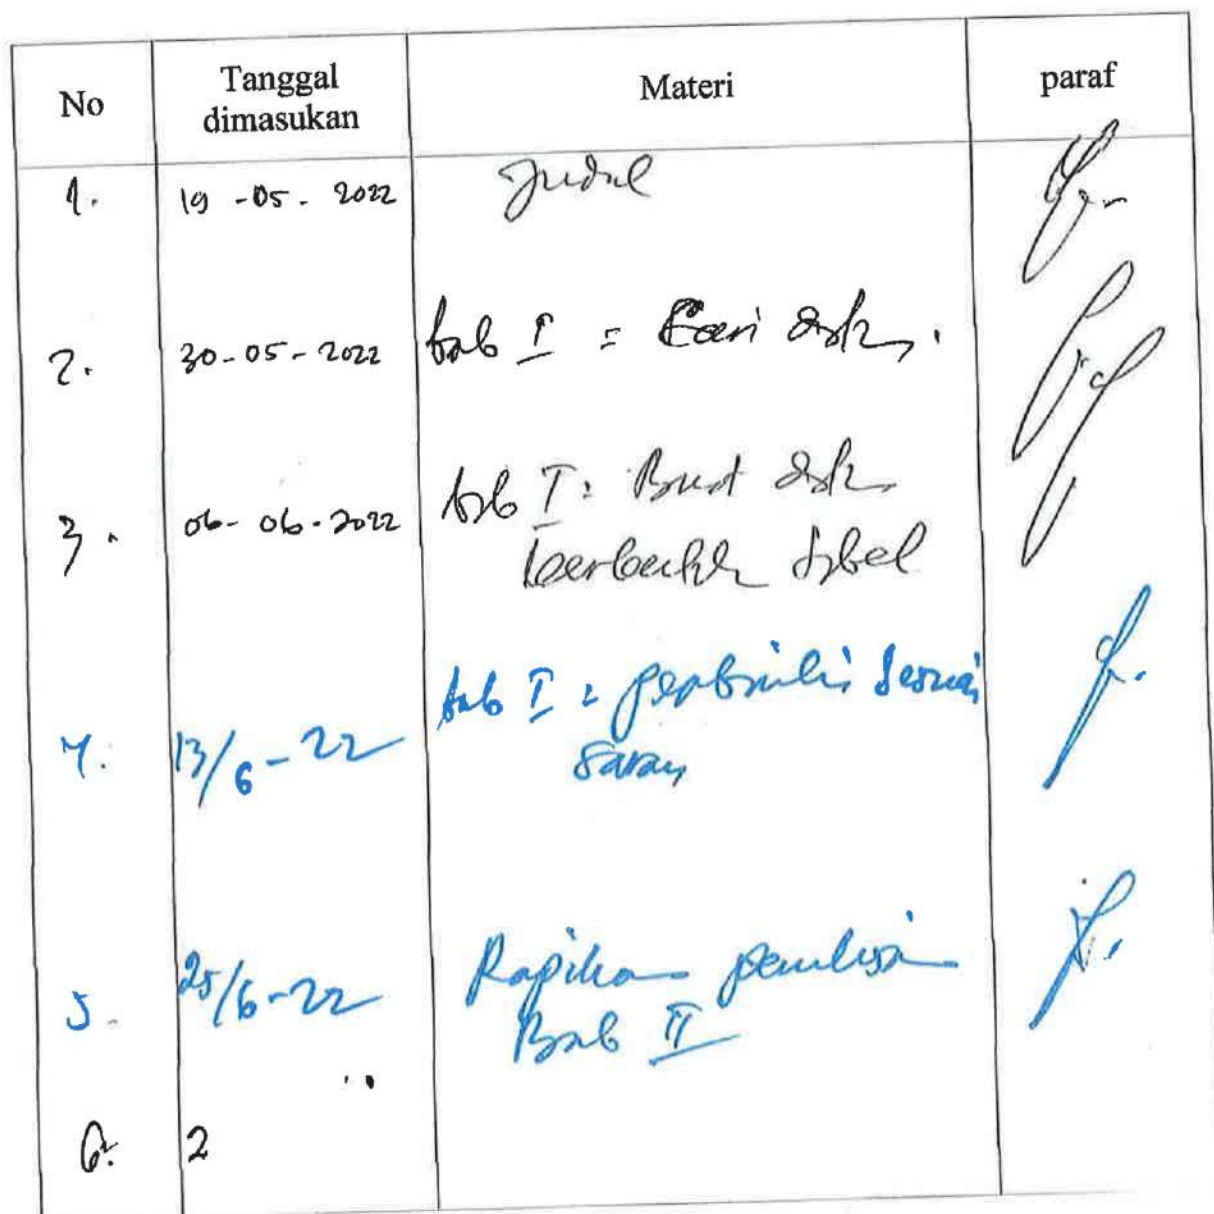 No Tanggal dimasukan Materi paraf
1. 19-05-2022 Judul
2. 30-05-2022 bab I = Cari
3. 06-06-2022 bab I = Buat
tabel
4. 13/6-22 bab I = perbaiki sesuai
saran
5. 25/6-22 Rapikan penulisan
Bab II
6. 2